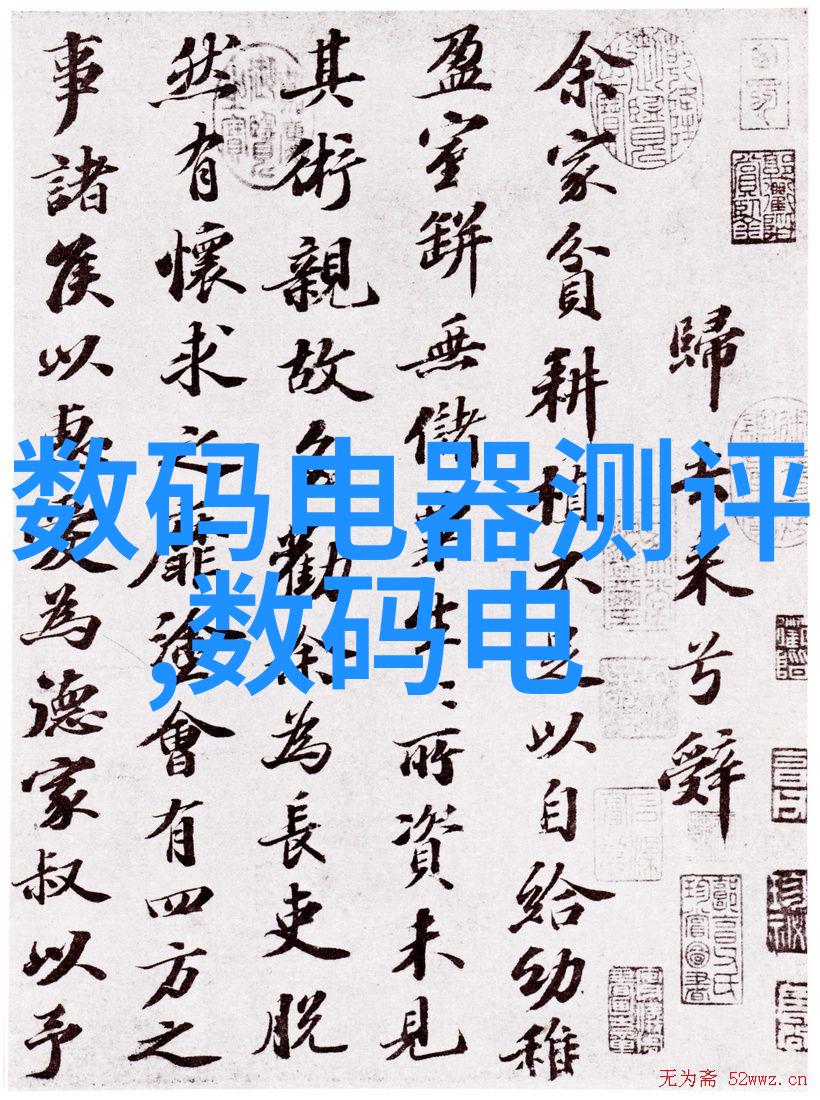 歸去来兮辭
余家貧耕植不足以自給幼稚
盈室缾無儲粟生〻所資未見
其術親故多勸余為長吏脫
然有懷求之靡途會有四方之
事諸侯以惠愛為德家叔以予
数码电器测评
,数码电
无为斋 52wwz.cn